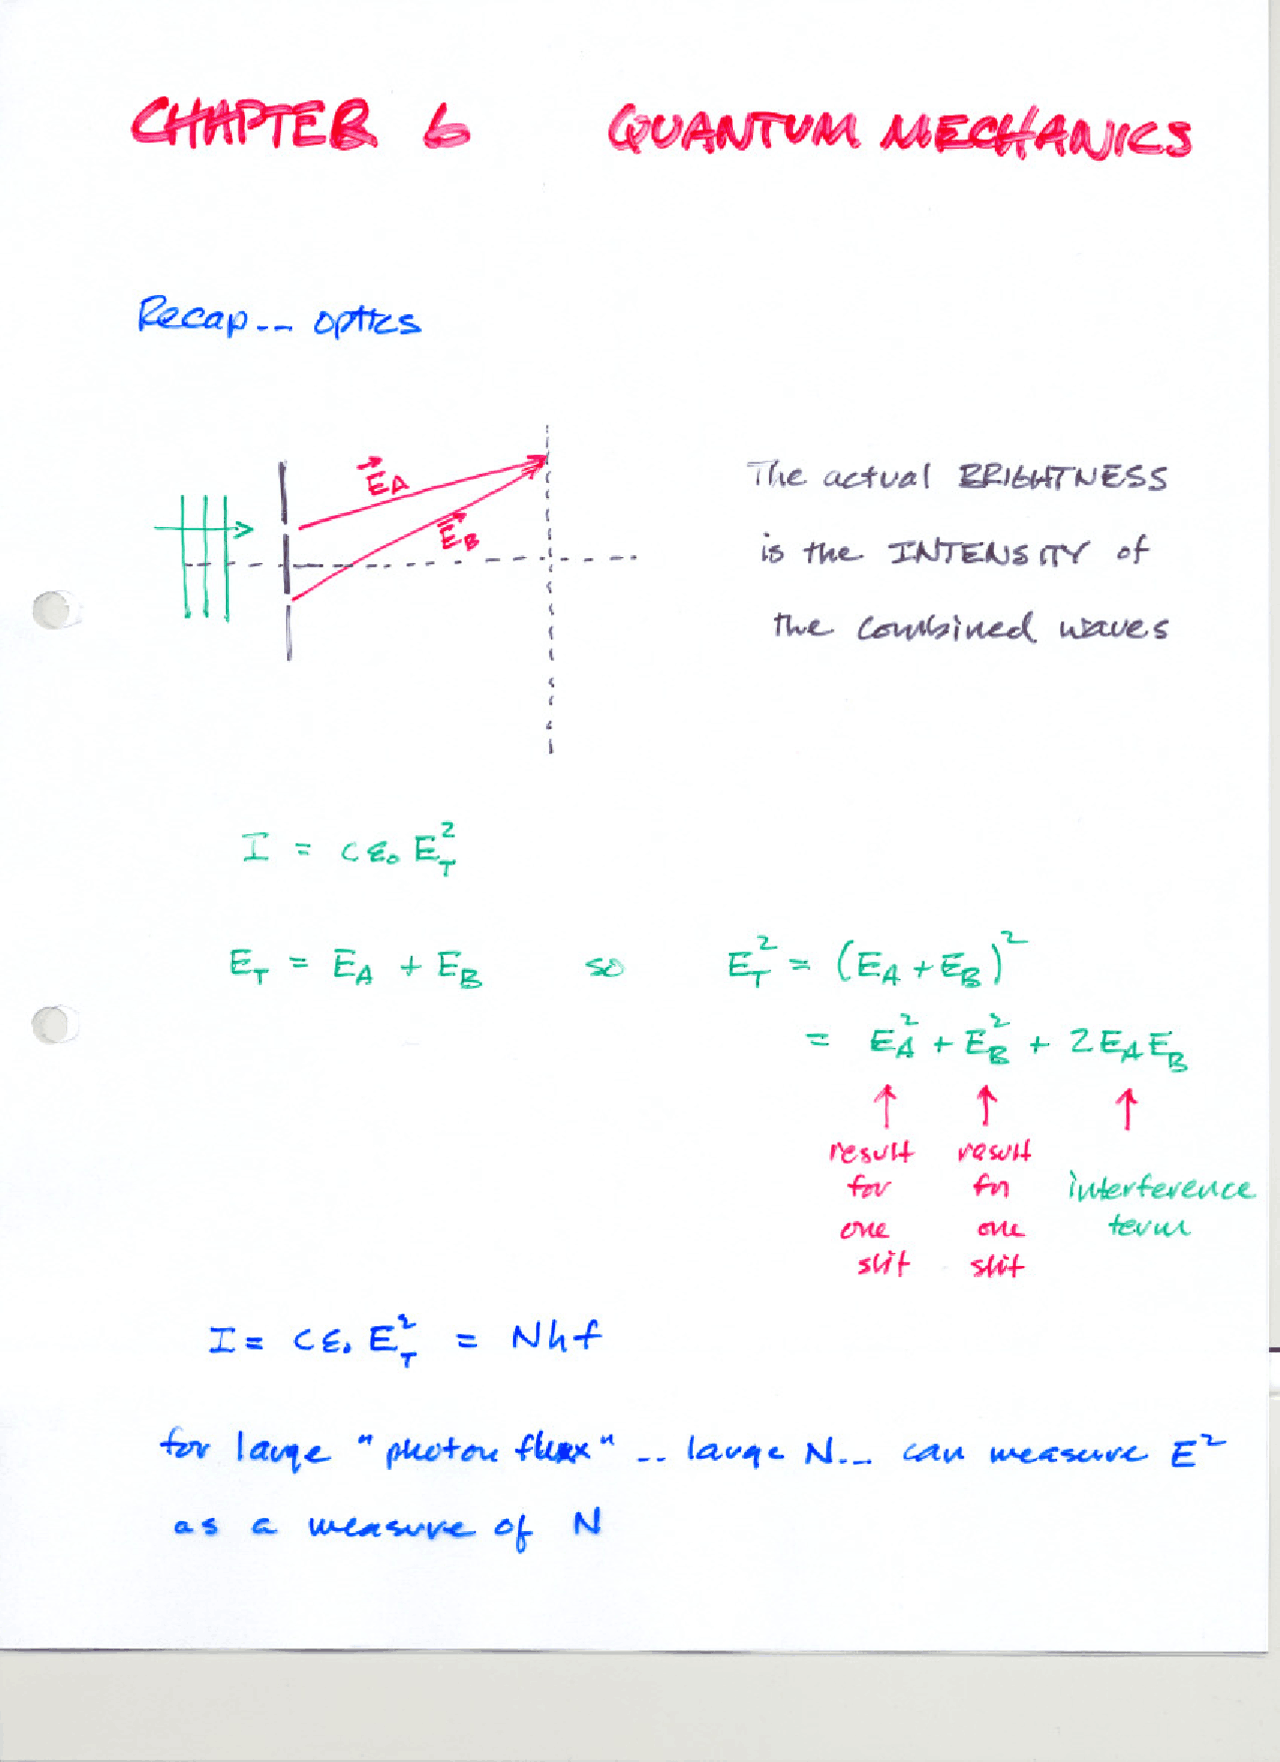 CHAPTER 6 QUANTUM MECHANICS
Recap -- optics
E⃗A
E⃗B
The actual BRIGHTNESS
is the INTENSITY of
the combined waves
I = cε₀ E_T²
E_T = E_A + E_B so E_T² = (E_A + E_B)²
= E_A² + E_B² + 2E_A E_B
↑ ↑ ↑
result result
for for interference
one one term
slit slit
I = cε₀ E_T² = Nhf
for large "photon flux" -- large N -- can measure E²
as a measure of N